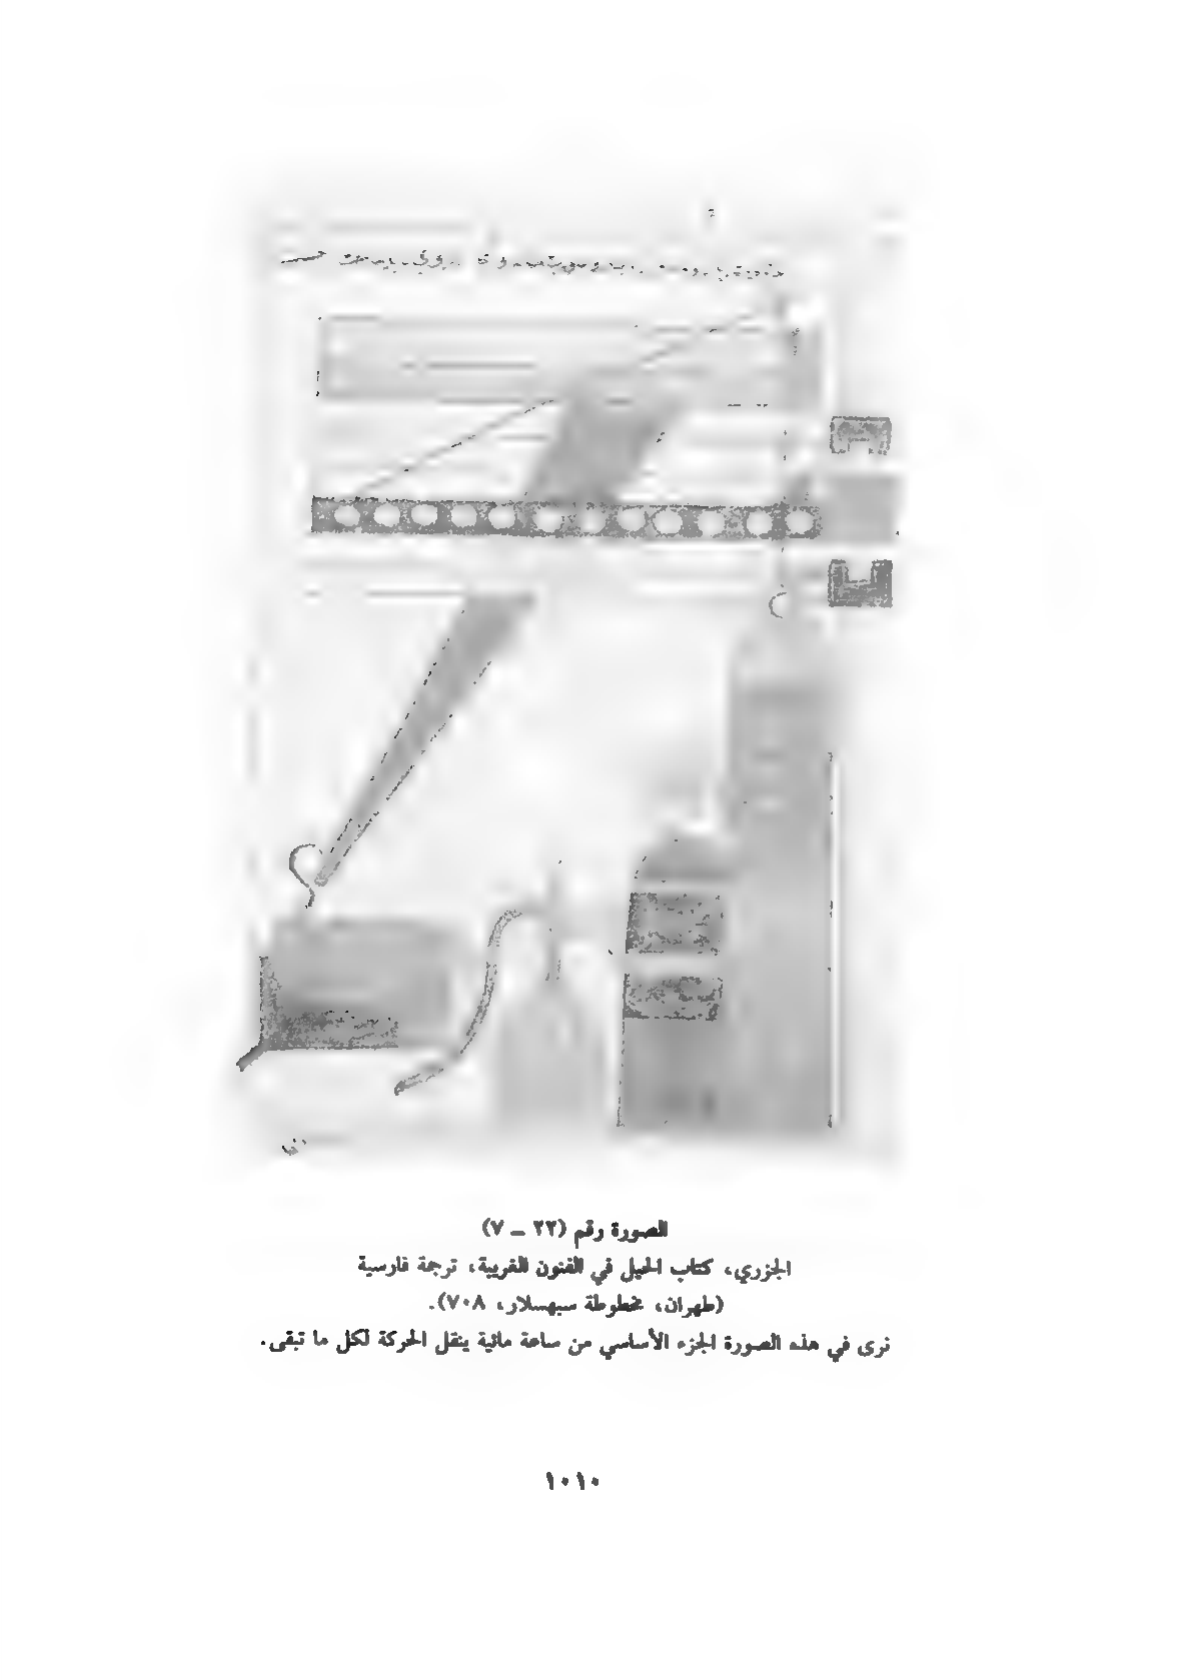 الصورة رقم (٢٢ ــ ٧)
الجزري، كتاب الحيل في الفنون الغريبة، ترجمة فارسية
(طهران، مخطوطة سبهسلار، ٧٠٨).
نرى في هذه الصورة الجزء الأساسي من ساعة مائية ينقل الحركة لكل ما تبقى.
١٠١٠